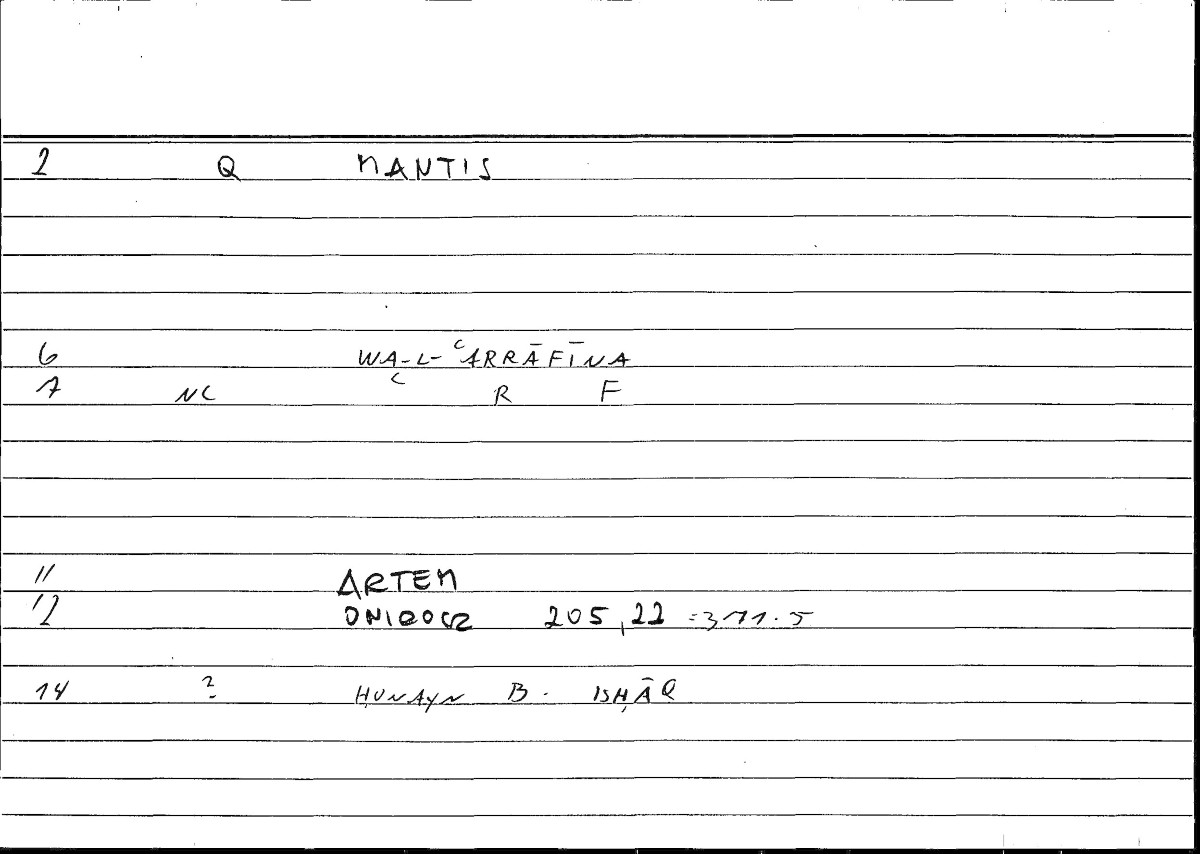 2 Q MANTIS
6 WA-L-ʿARRĀFĪNA
7 NC ʿ R F
11 ARTEM
12 ONIROCR 205,22 =311.5
14 ? ḤUNAYN B. ISḤĀQ